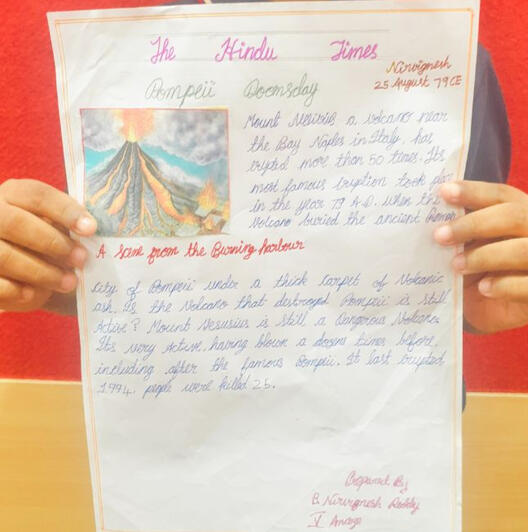 The Hindu Times
Nirvignesh
25 August 79 CE
Pompeii Doomsday
Mount Vesuvius a volcano near
the Bay Naples in Italy, has
erupted more than 50 times. Its
most famous eruption took place
in the year 79 A.D. when the
Volcano buried the ancient Roman
A Scene from the Burning harbour
City of Pompeii under a thick carpet of Volcanic
ash. Is the Volcano that destroyed Pompeii is still
Active? Mount Vesusius is still a Dangerous Volcano.
Its very Active, having blown a dozens times before,
including after the famous Pompeii. It last erupted
1994. people were killed 25.
Prepared By
B. Nirvignesh Reddy
V